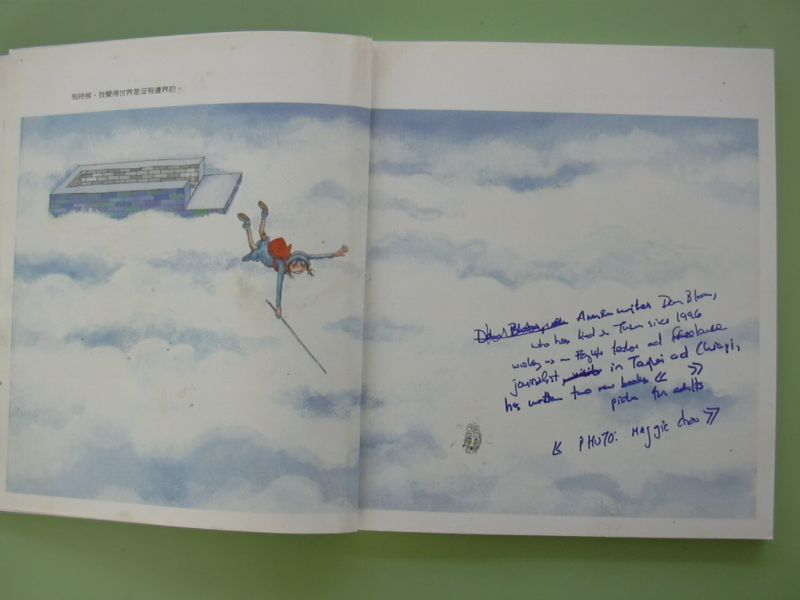 有時候，我覺得世界是沒有邊界的。
American writer Dan Bloom,
who has lived in Taiwan since 1996
working as an English teacher and freelance
journalist in Taipei and Chiayi,
has written two new books « »
picture for adults
« PHOTO: Maggie Chao »